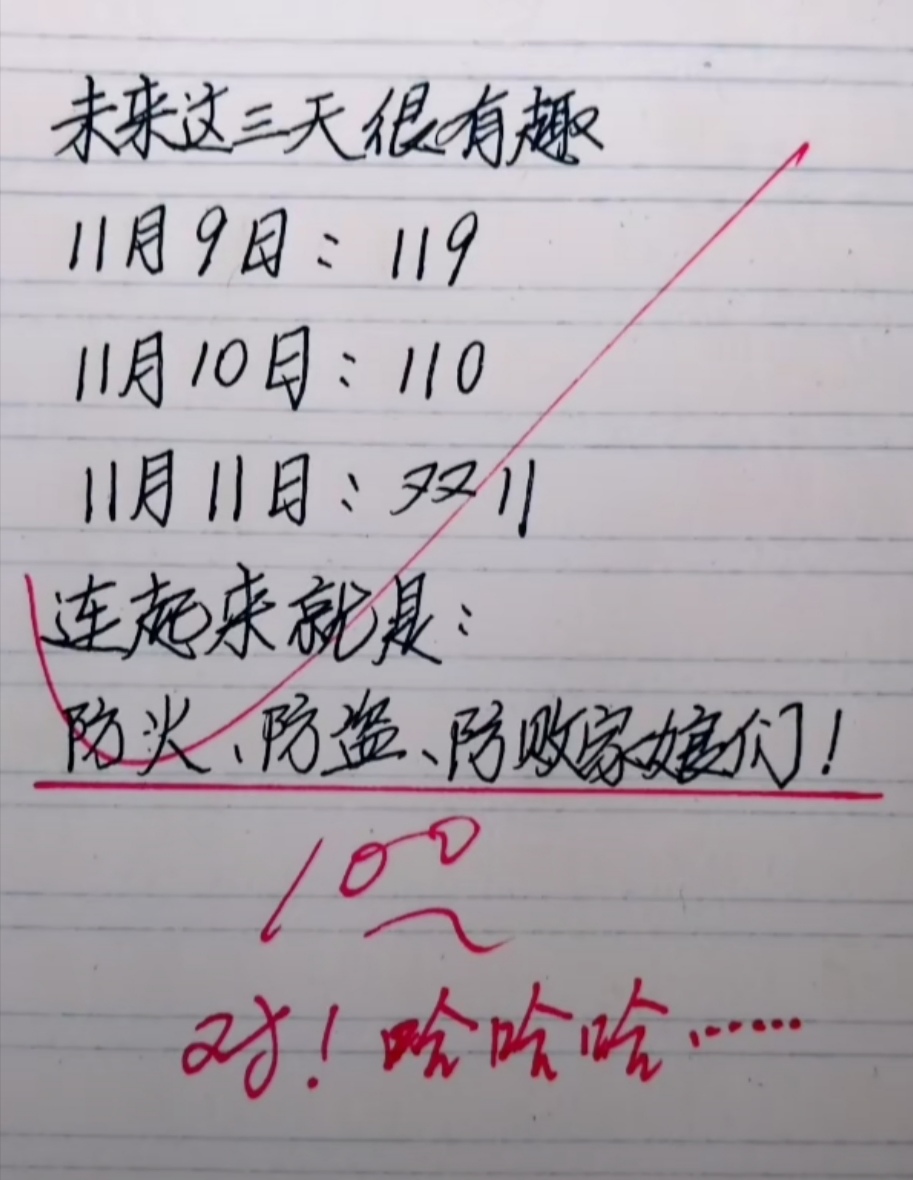 未来这三天很有趣
11月9日：119
11月10日：110
11月11日：双11
连起来就是：
防火、防盗、防败家娘们！
100
对！哈哈哈……